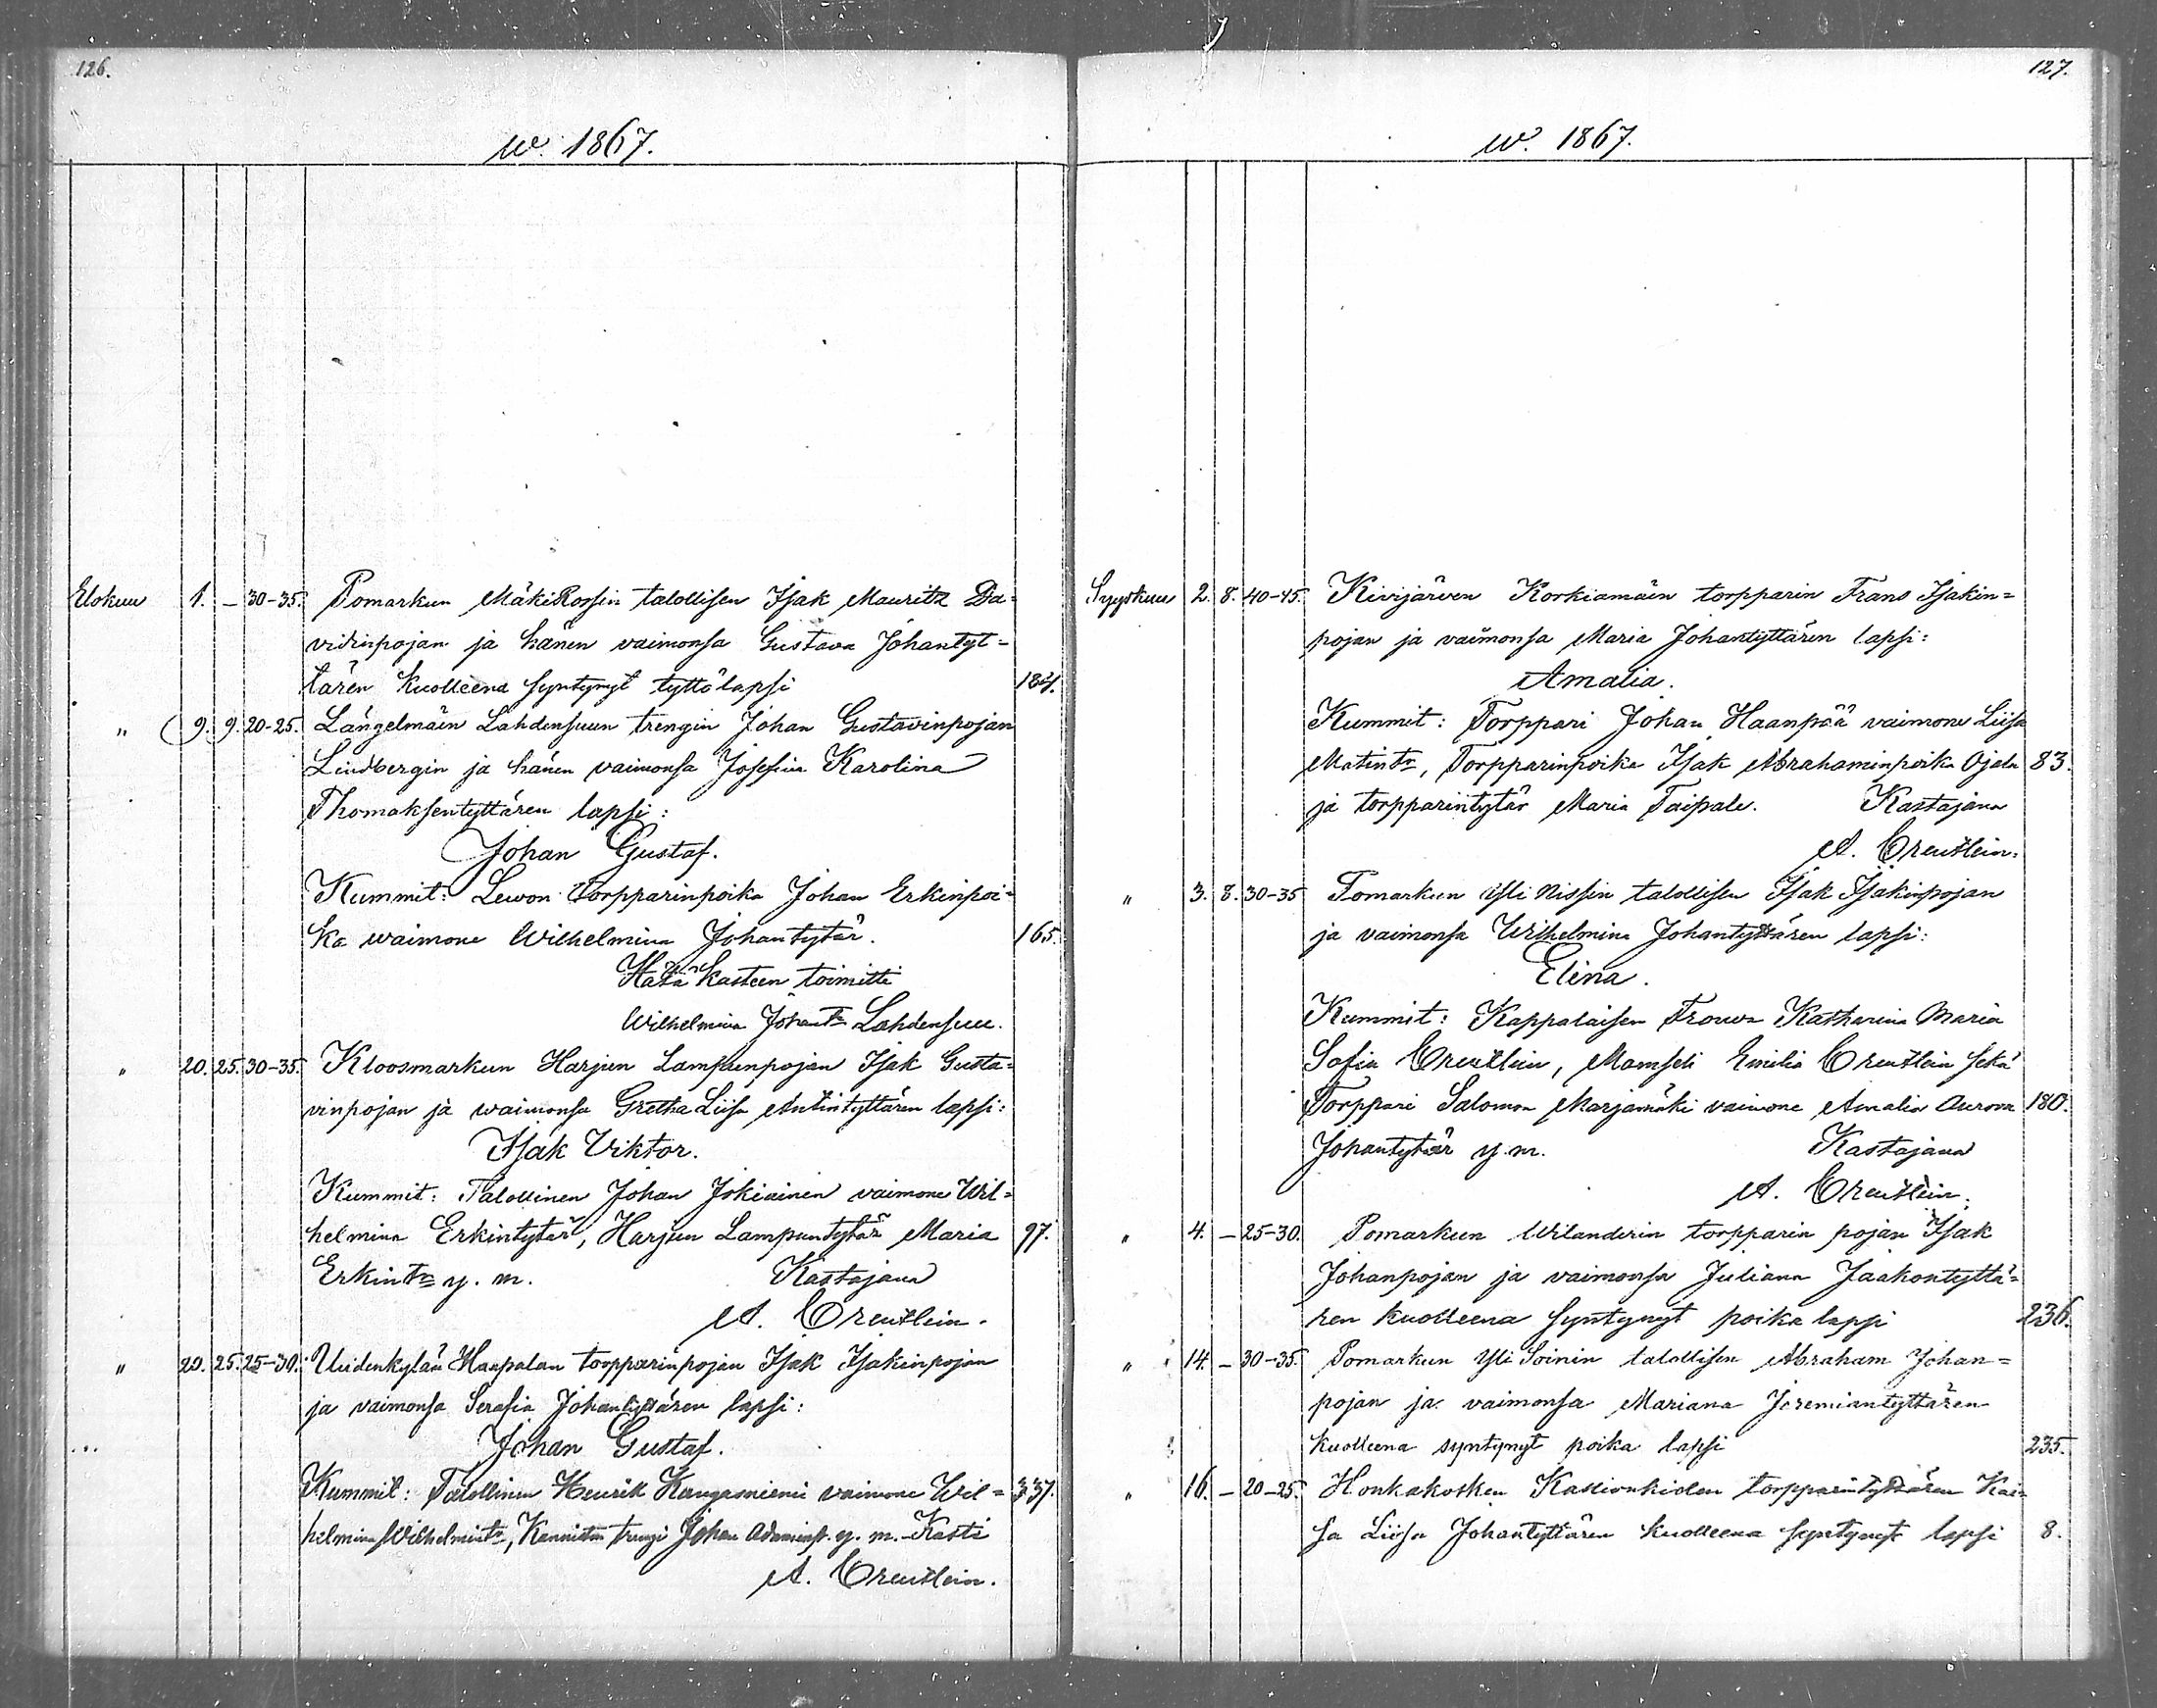 126.
w. 1867.
Elokuu 1. – 30-35. Pomarkun MäkiRossin talollisen Isak Mauritz Da-
vidinpojan ja hänen vaimonsa Gustava Johantyt-
tären kuolleena syntynyt tyttölapsi 184.
" 9. 9. 20-25. Längelmäin Lahdensuun trengin Johan Gustavinpojan
Lindbergin ja hänen vaimonsa Josefina Karolina
Thomaksentyttären lapsi:
Johan Gustaf.
Kummit: Lewon Torpparinpoika Johan Erkinpoi-
ka waimone Wilhelmina Johantytär. 165.
Hätä kasteen toimitti
Wilhelmina Johantr Lahdensuu.
" 20. 25. 30-35. Kloosmarkun Harjun Lampuenpojan Isak Gusta-
vinpojan ja waimonsa Gretha Liisa Antintyttären lapsi:
Isak Viktor.
Kummit: Talollinen Johan Jokiainen vaimone Wil-
helmina Erkintytär, Harjun Lampuntytär Maria 97.
Erkintr y. m. Kastajana
A. Oreutlein.
" 20. 25. 25-30. Uudenkylän Haapalan torpparinpojan Isak Isakinpojan
ja vaimonsa Serafia Johantyttären lapsi:
Johan Gustaf.
Kummit: Talollinen Henrik Kangasniemi vaimone Wil- 337.
helmina Wilhelmintr, Kannitun trengi Johan Adaminp. y. m. Kasti
A. Oreutlein.
127.
w. 1867.
Syyskuu 2. 8. 40-45. Kivijärven Korkiamäin torpparin Frans Isakin-
pojan ja vaimonsa Maria Johantyttären lapsi:
Amalia.
Kummit: Torppari Johan Haanpää vaimone Liisa
Matintr, Torpparinpoika Isak Abrahaminpoika Ojala 83.
ja torpparintytär Maria Taipale. Kastajana
A. Oreutlein.
" 3. 8. 30-35 Pomarkun Yli Nissin talollisen Isak Isakinpojan
ja vaimonsa Wilhelmina Johantyttären lapsi:
Elina.
Kummit: Kappalaisen Frouva Katharina Maria
Sofia Oreutlein, Mamseli Emilia Oreutlein sekä
Torppari Salomon Marjamäki vaimone Amalia Aurora 180.
Johantytär y. m. Kastajana
A. Oreutlein.
" 4. – 25-30. Pomarkun Wilanderin torpparin pojan Isak
Johanpojan ja vaimonsa Juliana Jaakontyttä-
ren kuolleena syntynyt poika lapsi 236.
" 14. – 30-35. Pomarkun Yli Soinin talollisen Abraham Johan-
pojan ja vaimonsa Mariana Jeremiantyttären
kuolleena syntynyt poika lapsi 235.
" 16. – 20-25. Honkakosken torpparintyttären Kai-
sa Liisa Johantyttären kuolleena syntynyt lapsi 8.